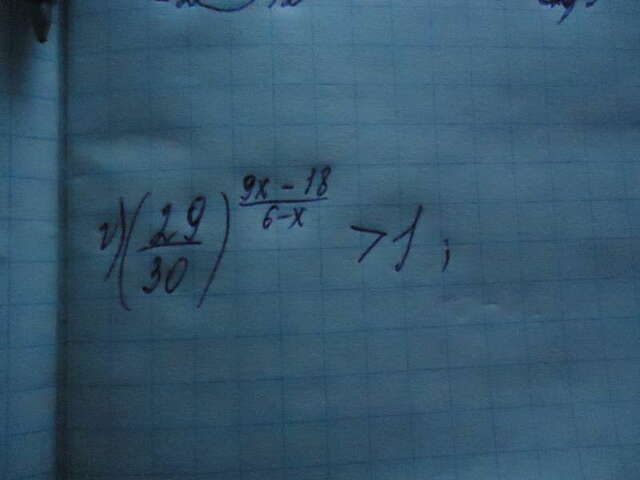 г) (29/30)^((9x - 18)/(6-x)) > 1;